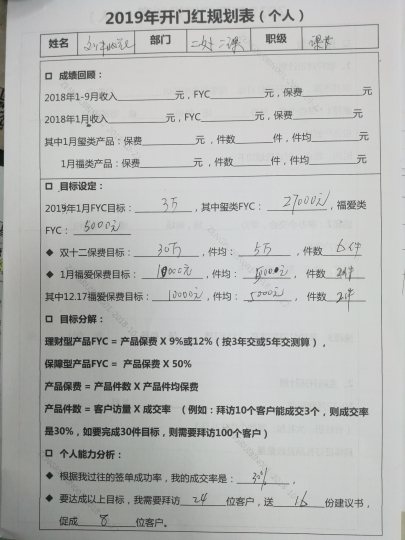 2019年开门红规划表（个人）
姓名 部门 二处二课 职级 课长
□ 成绩回顾：
2018年1-9月收入____元，FYC____元，保费____元
2018年1月收入____元，FYC____元，保费____元
其中1月玺类产品：保费____元，件数____件，件均____元
1月福类产品：保费____元，件数____件，件均____元
□ 目标设定：
2019年1月FYC目标：3万，其中玺类FYC：27000元，福爱类
FYC：5000元
◆ 双十二保费目标：30万，件均：5万，件数 6件
◆ 1月福爱保费目标：10000元，件均：5000元，件数 2件
其中12.17福爱保费目标：10000元，件均：5000元，件数 2件
□ 目标分解：
理财型产品FYC = 产品保费 X 9%或12%（按3年交或5年交测算），
保障型产品FYC = 产品保费 X 50%
产品保费 = 产品件数 X 产品件均保费
产品件数 = 客户访量 X 成交率 （例如：拜访10个客户能成交3个，则成交率
是30%，如要完成30件目标，则需要拜访100个客户）
□ 个人能力分析：
◆ 根据我过往的签单成功率，我的成交率是：30%，
◆ 要达成以上目标，我需要拜访 24 位客户，送 16 份建议书，
促成 8 位客户。